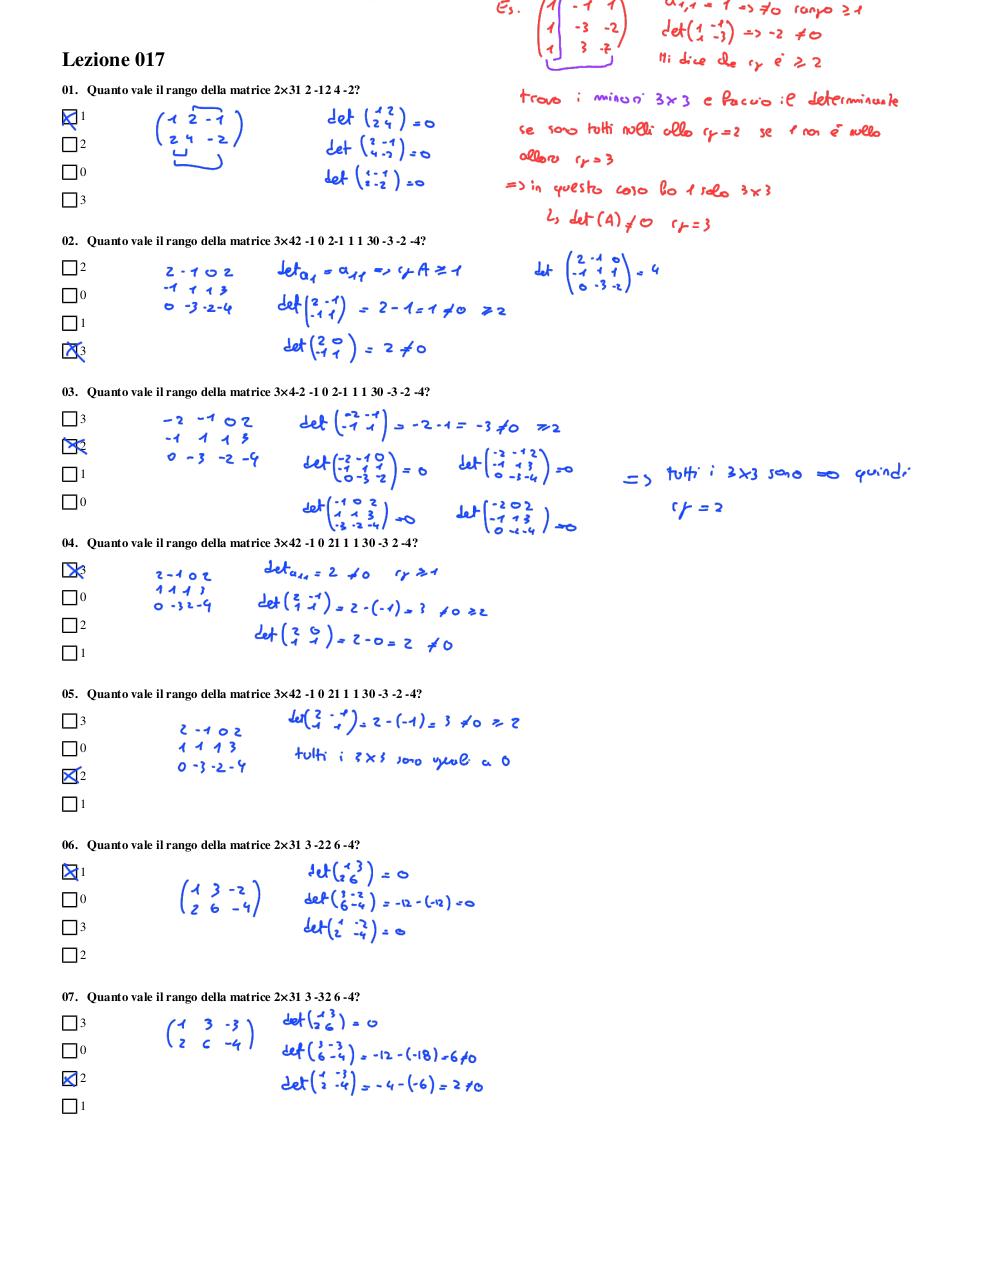 Es. (1 -1 1
1 -3 -2
1 3 -7)
a1,1 = 1 => ≠0 rango ≥1
det(1 -1
1 -3) => -2 ≠0
Mi dice che rg è ≥ 2
trovo i minori 3x3 e faccio il determinante
se sono tutti nulli allo rg=2 se 1 non è nullo
allora rg=3
=> in questo caso ho 1 solo 3x3
↳ det(A)≠0 rg=3
Lezione 017
01. Quanto vale il rango della matrice 2×31 2 -12 4 -2?
1
2
0
3
(1 2 -1
2 4 -2)
det (1 2
2 4) =0
det (2 -1
4 -2) =0
det (1 -1
2 -2) =0
02. Quanto vale il rango della matrice 3×42 -1 0 2-1 1 1 30 -3 -2 -4?
2
0
1
3
2 -1 0 2
-1 1 1 3
0 -3 -2 -4
det a1 = a11 => rg A ≥ 1
det(2 -1
-1 1) = 2-1=1≠0 ≥2
det(2 0
-1 1) = 2 ≠0
det (2 -1 0
-1 1 1
0 -3 -2) = 4
03. Quanto vale il rango della matrice 3×4-2 -1 0 2-1 1 1 30 -3 -2 -4?
3
2
1
0
-2 -1 0 2
-1 1 1 3
0 -3 -2 -4
det(-2 -1
-1 1) = -2-1= -3≠0 ≥2
det(-2 -1 0
-1 1 1
0 -3 -2) = 0
det(-2 -1 2
-1 1 3
0 -3 -4) =0
det(-1 0 2
1 1 3
-3 -2 -4) =0
det(-2 0 2
-1 1 3
0 -2 -4) =0
=> tutti i 3x3 sono =0 quindi
rg = 2
04. Quanto vale il rango della matrice 3×42 -1 0 21 1 1 30 -3 2 -4?
3
0
2
1
2 -1 0 2
1 1 1 3
0 -3 2 -4
det a11 = 2 ≠0 rg ≥1
det(2 -1
1 1) = 2-(-1)= 3 ≠0 ≥2
det(2 0
1 1) = 2-0= 2 ≠0
05. Quanto vale il rango della matrice 3×42 -1 0 21 1 1 30 -3 -2 -4?
3
0
2
1
2 -1 0 2
1 1 1 3
0 -3 -2 -4
det(2 -1
1 1) = 2-(-1)= 3 ≠0 ≥ 2
tutti i 3x3 sono uguali a 0
06. Quanto vale il rango della matrice 2×31 3 -22 6 -4?
1
0
3
2
(1 3 -2
2 6 -4)
det(1 3
2 6) = 0
det(3 -2
6 -4) = -12-(-12)=0
det(1 -2
2 -4) = 0
07. Quanto vale il rango della matrice 2×31 3 -32 6 -4?
3
0
2
1
(1 3 -3
2 6 -4)
det(1 3
2 6) = 0
det(3 -3
6 -4) = -12-(-18)=6≠0
det(1 -3
2 -4) = -4-(-6)= 2≠0